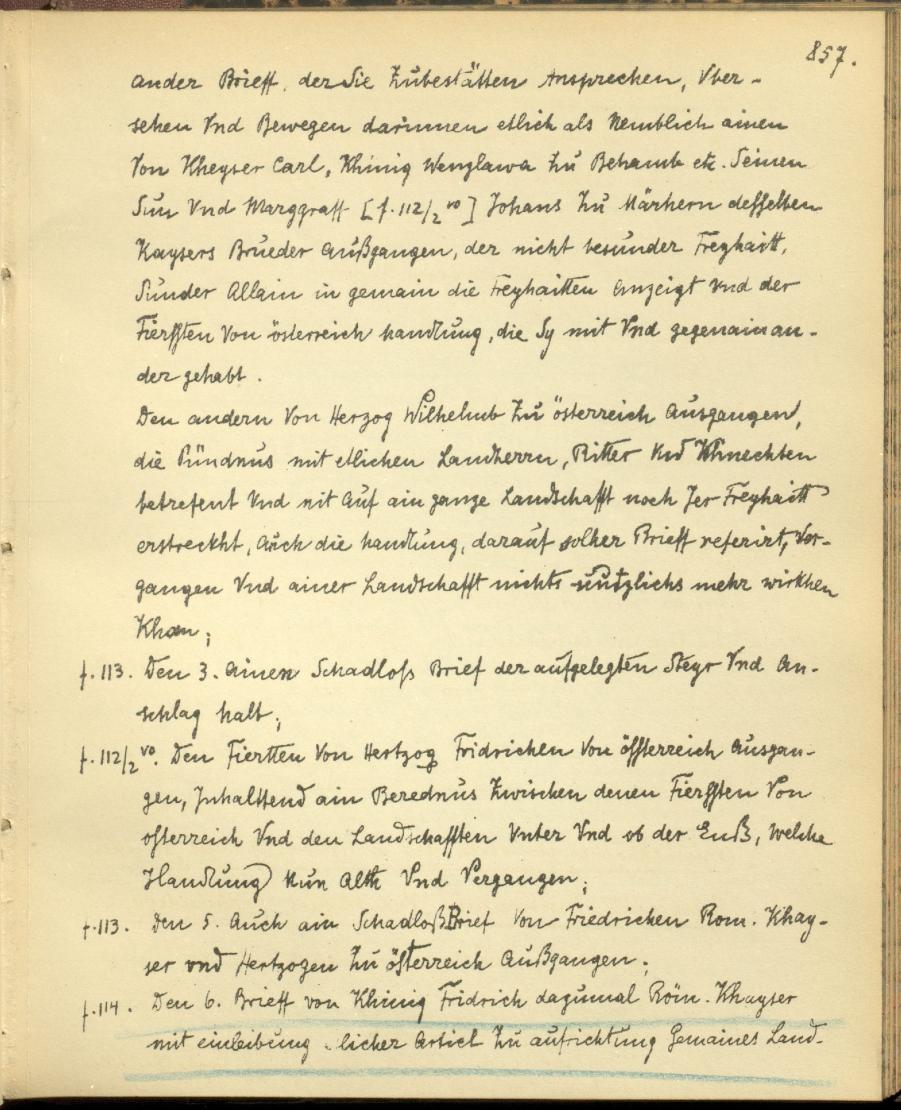 857.
ander Brieff, der Sie Zubestätten Ansprechen, Vber-
sehen Vnd Bewegen darinnen etlich als Nemblich ainen
Von Kheyser Carl, Khinig Wenzlawa Zu Behamb etc. Seinen
Sun Vnd Marggraff [f. 112/2 vo] Johans Zu Märhern desselben
Kaysers Brueder Außgangen, der nicht besunder Freyhaitt,
Sunder Allain in gemain die Freyhaitten Anzeigt vnd der
Fiersften Von österreich handlung, die Sy mit Vnd gegenainan-
der gehabt.
Den andern Von Herzog Wilhelmb Zu österreich Ausgangen,
die Pündnus mit etlichen Landherrn, Ritter Vnd Khnechten
betrefent Vnd nit Auf ain ganze Landschafft noch Jer Freyhaitt
erstreckht, Auch die handlung, darauf solher Brieff referirt, Ver-
gangen Vnd ainer Landschafft nichts nutzlichs mehr wirkhen
Khan;
f. 113. Den 3. Ainen Schadloss Brief der aufgelegten Steyr Vnd An-
schlag halt;
f. 112/2 vo. Den Fiertten Von Hertzog Fridrichen Von össterreich Ausgan-
gen, Inhalttend ain Berednus Zwischen denen Fiersften Von
österreich Vnd den Landschafften Vnter Vnd ob der Enß, Welche
Handlung Nun Alth Vnd Vergangen;
f. 113. Den 5. Auch ain Schadloß Brief Von Friedrichen Rom. Khay-
ser vnd Hertzogen Zu össterreich Außgangen;
f. 114. Den 6. Brieff von Khinig Fridrich dazumal Röm. Khayser
mit einleibung licher Articl Zu aufrichtung Gemaines Land-